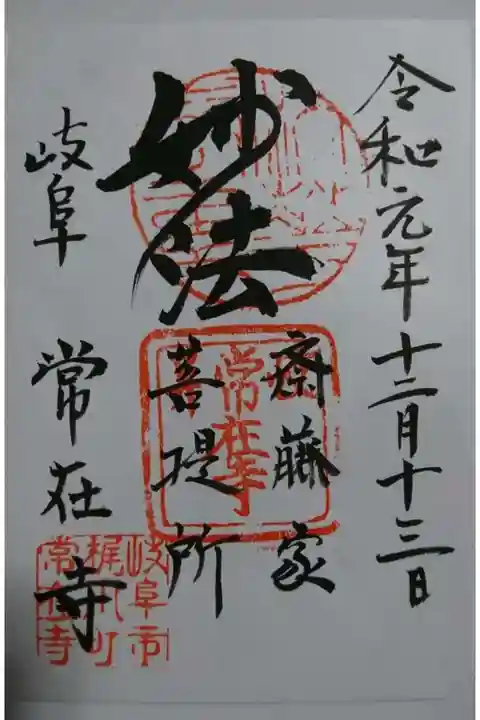 令和元年十二月十三日
妙法
斎藤家
菩提所
岐阜 常在寺
常在寺
岐阜市
梶川町
常在寺